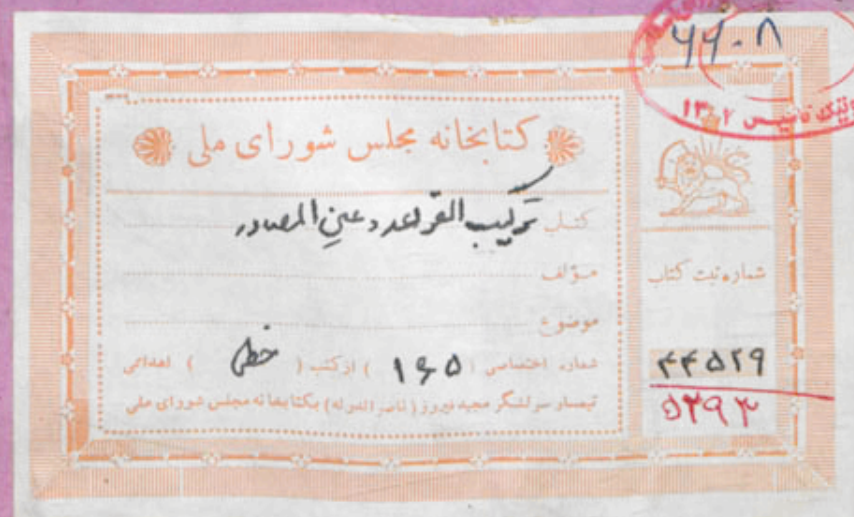 ۶۶۰۸
تأسیس ۱۳۰۲
کتابخانه مجلس شورای ملی
کتاب ترکیب القواعد و عین المصادر
مؤلف
موضوع
شماره اختصاصی ( ۱۶۵ ) از کتب ( خطی ) اهدائی
تیمسار سرلشگر مجید فیروز ( ناصرالدوله ) بکتابخانه مجلس شورای ملی
شماره ثبت کتاب
۴۴۵۲۹
۵۲۹۳